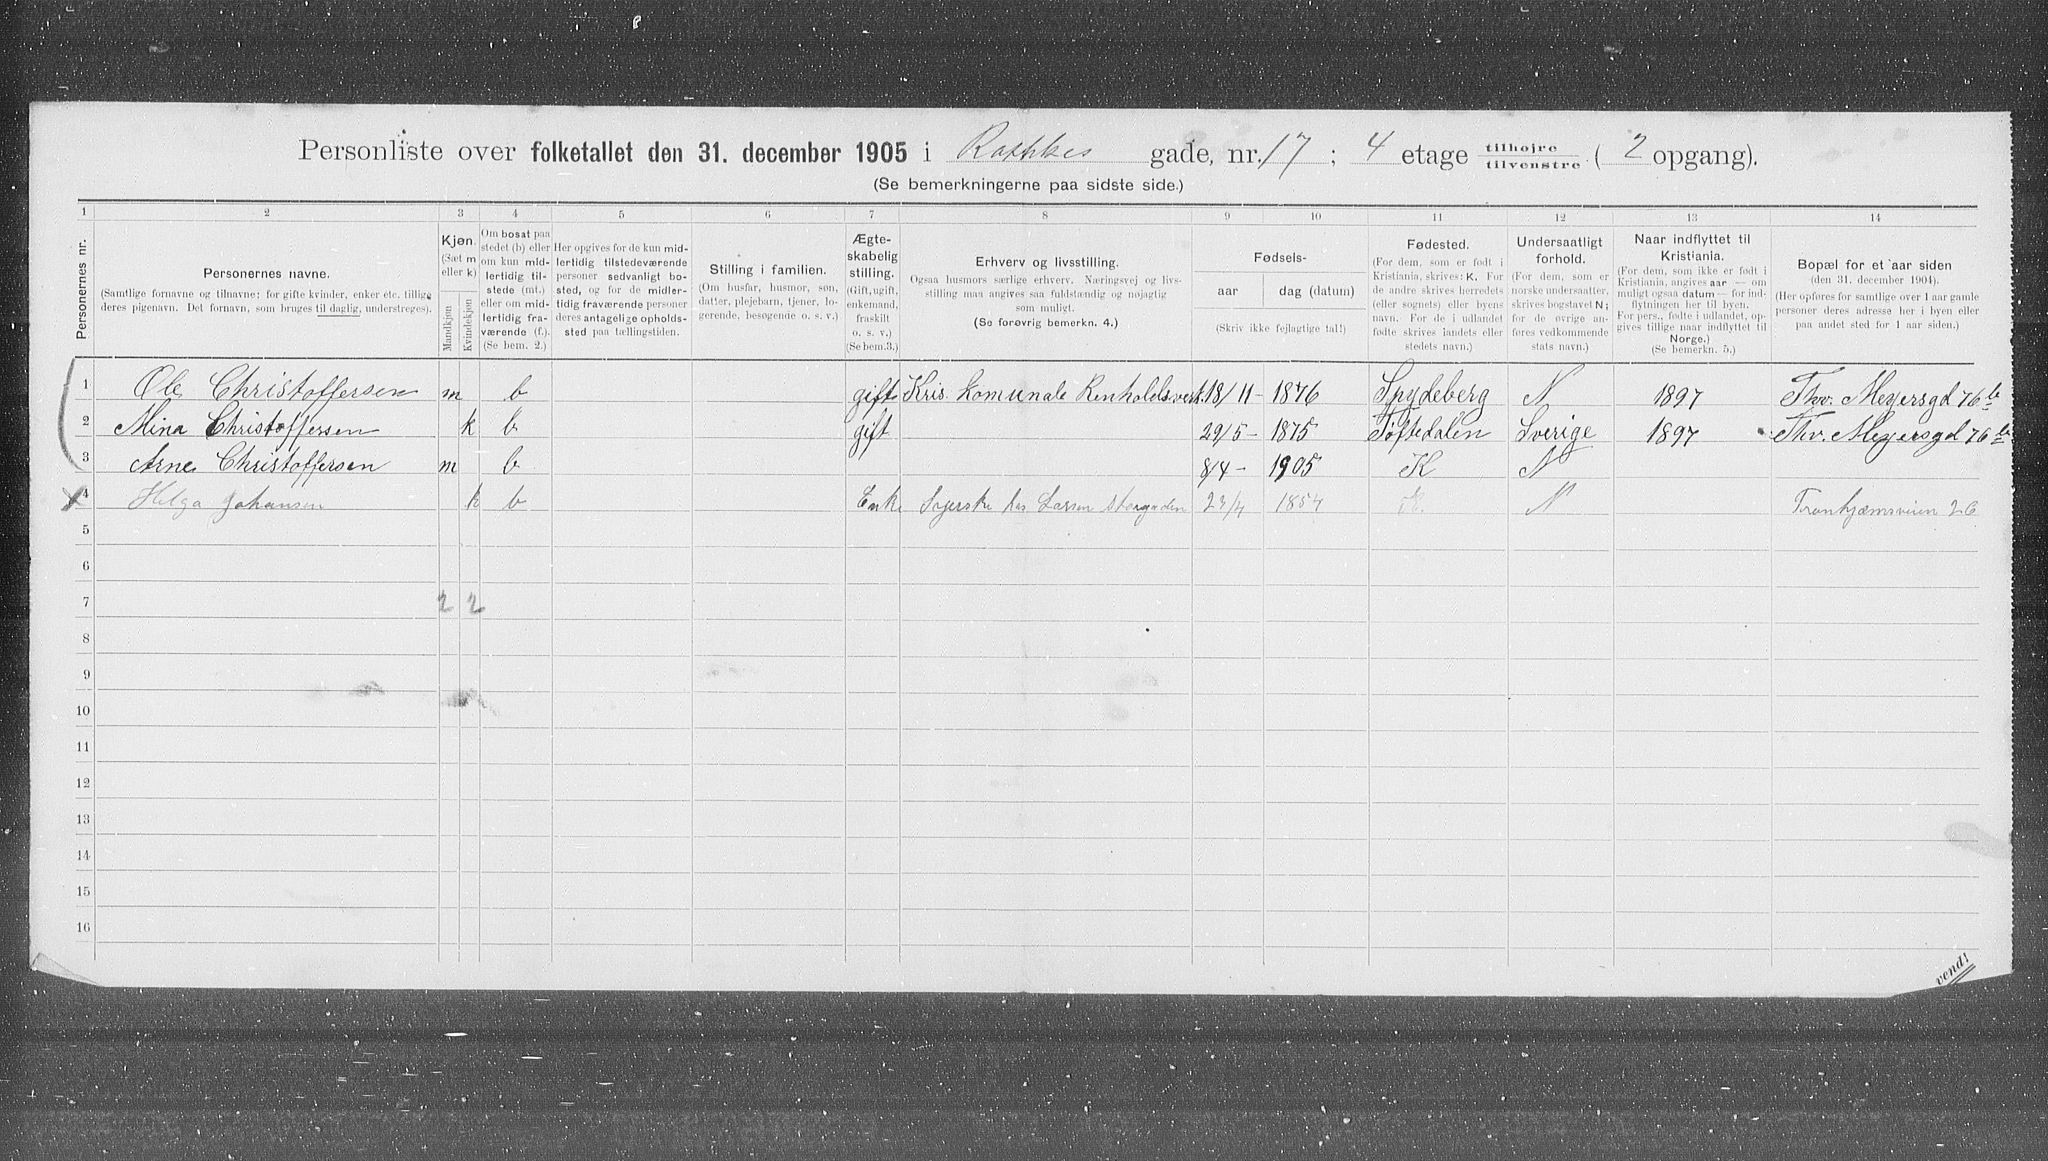 Personliste over folketallet den 31. december 1905 i Rathkes gade, nr. 17 ; 4 etage tilhøjre tilvenstre ( 2 opgang).
(Se bemerkningerne paa sidste side.)
1 2 3 4 5 6 7 8 9 10 11 12 13 14
Personernes nr.
Personernes navne.
(Samtlige fornavne og tilnavne; for gifte kvinder, enker etc. tillige
deres pigenavn. Det fornavn, som bruges til daglig, understreges).
Kjøn.
(Sæt m
eller k)
Mandkjøn
Kvindekjøn
Om bosat paa
stedet (b) eller
om kun mid-
lertidig til-
stede (mt.)
eller om mid-
lertidig fra-
værende (f.).
(Se bem. 2.)
Her opgives for de kun mid-
lertidig tilstedeværende
personer sedvanligt bo-
sted, og for de midler-
tidig fraværende personer
deres antagelige opholds-
sted paa tællingstiden.
Stilling i familien.
(Om husfar, husmor, søn,
datter, plejebarn, tjener, lo-
gerende, besøgende o. s. v.)
Ægte-
skabelig
stilling.
(Gift, ugift,
enkemand,
fraskilt
o. s. v.)
(Se bem.3.)
Erhverv og livsstilling.
Ogsaa husmors særlige erhverv. Næringsvej og livs-
stilling maa angives saa fuldstændig og nøjagtig
som muligt.
(Se forøvrig bemerkn. 4.)
Fødsels-
aar
dag (datum)
(Skriv ikke fejlagtige tal!)
Fødested.
(For dem, som er født i
Kristiania, skrives: K. For
de andre skrives herredets
(eller sognets) eller byens
navn. For de i udlandet
fødte skrives landets eller
stedets navn.)
Undersaatligt
forhold.
(For dem, som er
norske undersaatter,
skrives bogstavet N;
for de øvrige an-
føres vedkommende
stats navn.)
Naar indflyttet til
Kristiania.
(For dem, som ikke er født i
Kristiania, angives aar — om
muligt ogsaa datum — for ind-
flytningen her til byen.
For pers., fødte i udlandet, op-
gives tillige naar indflyttet til
Norge.)
(Se bemerkn. 5.)
Bopæl for et aar siden
(den 31. december 1904).
(Her opføres for samtlige over 1 aar gamle
personer deres adresse her i byen eller
paa andet sted for 1 aar siden.)
1 Ole Christoffersen m b gift Kris. Komunale Renholdsverk. 18/11 - 1876 Spydeberg N 1897 Thv. Meyersgd 76 b
2 Mina Christoffersen k b gift 29/5 - 1875 Töftedalen Sverige 1897 Thv. Meyersgd 76 b
3 Arne Christoffersen m b 8/4 - 1905 K N
4 Helga Johansen k b Enke Syerske hos Larsen Storgaden 23/4 1854 K. N Tronhjæmsveien 26
5
6
7 2 2
8
9
10
11
12
13
14
15
16
vend!